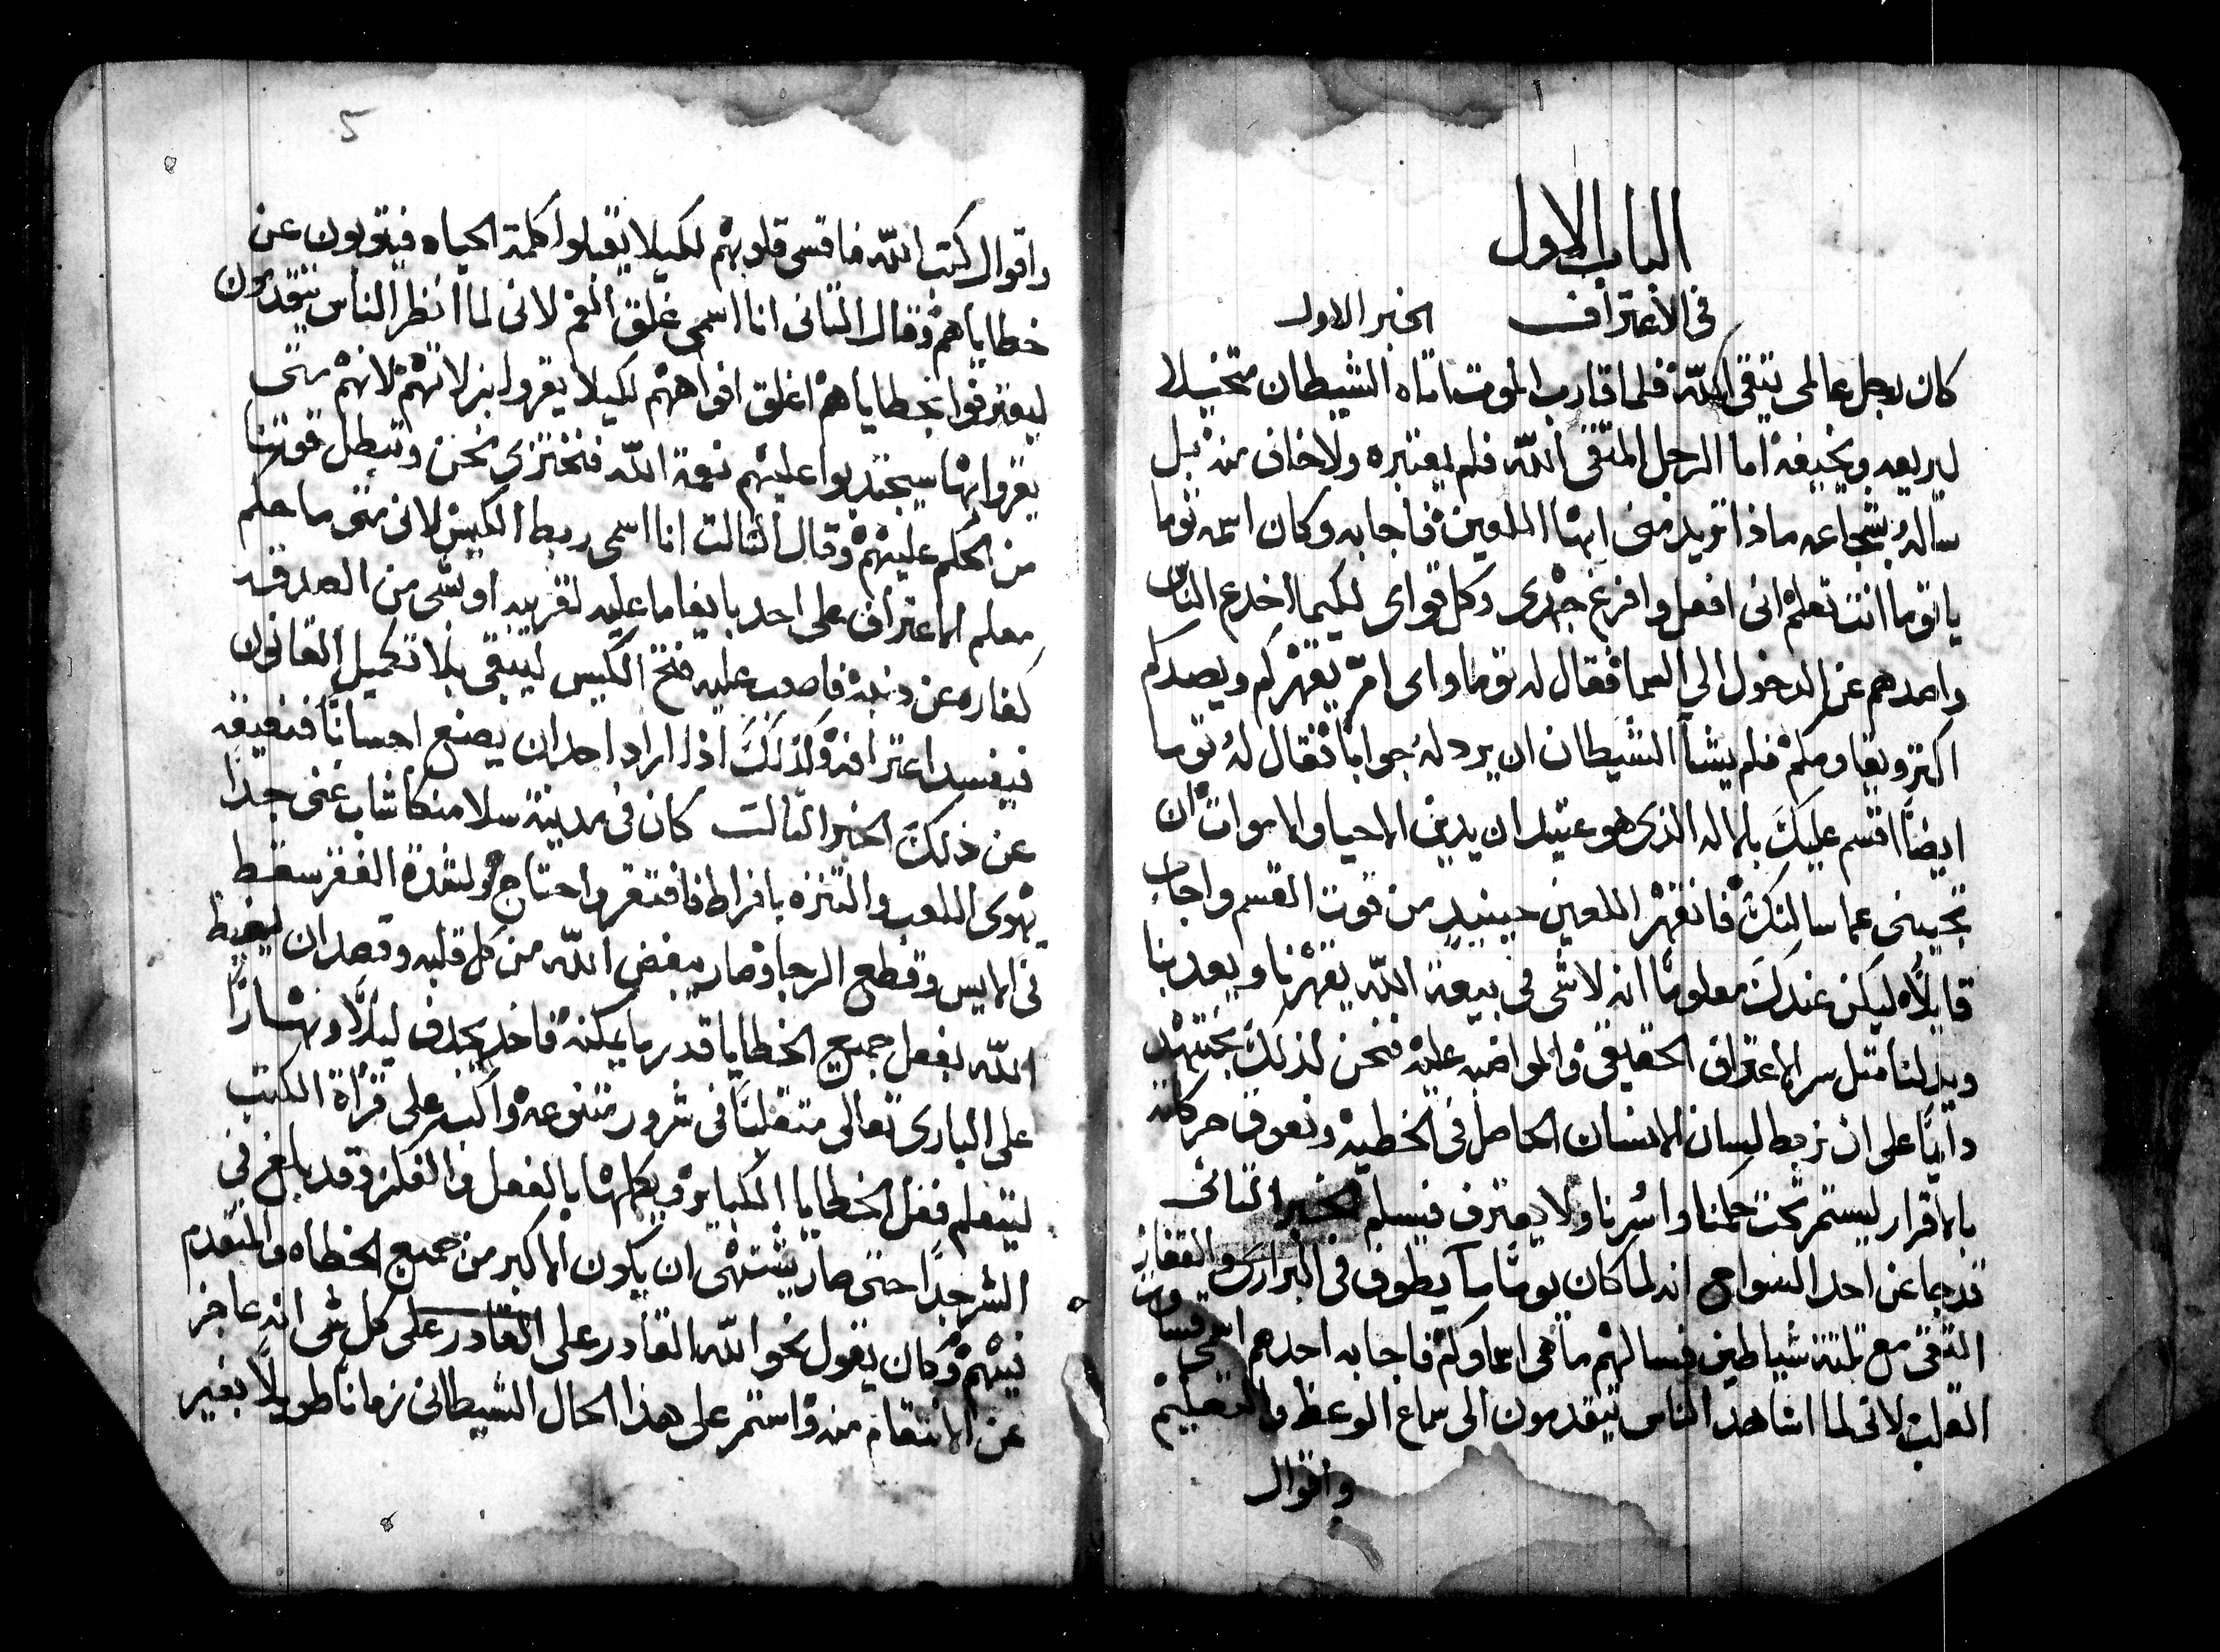 الباب الاول
في الاعتراف الخبر الاول
كان رجل عالمى يتقى الله فلما قارب الموت اتاه الشيطان متخيلا
ليريعه ويخيفه اما الرجل المتقى الله فلم يعتبره ولا خاف منه بل
ساله بشجاعه ماذا تريد منى ايها الملعين فاجابه وكان اسمه توما
يا توما انت تعلم انى افعل وافرغ جهدى وكل قواى لكيما اخدع الناس
واصدهم عن الدخول الي السما فقال له توما واى امر يقهركم ويصدكم
اكتر ويقاومكم فلم يشا الشيطان ان يرد له جوابا فقال له توما
ايضا اقسم عليك بالاله الذى هو عتيد ان يدين الاحيا والاموات ان
تجيبنى عما سالتك فانقهر اللعين حينيد من قوت القسم واجاب
قايلا ليكن عندك معلوما انه لاشى فى بيعة الله يقهرنا ويعدبنا
ويدلنا متل سر الاعتراف الحقيقى والمواضبه عليه فنحن لذلك نجتهد
دايما على ان نربط لسان الانسان الحاصل فى الخطيه ونعوق حركاته
بالاقرار ليستمر تحت حكمنا واسرنا ولا يعترف فيسلم الخبر التانى
ترجما عن احد السواح انه لما كان يوما ما يطوف فى البرارى والقفار
التقى مع تلتة شياطين فسالهم ما هى اسماوكم فاجابه احدهم اسمى قساوت
القلب لانى لما اشاهد الناس يتقدمون الى سماع الوعظ والتعليم
واقوال
واقوال كتب الله فاقسى قلوبهم لكيلا يقبلوا كلمة الحياه فيتوبون عن
خطاياهم وقال التانى انا اسمى غلق الفم لانى لما انظر الناس يتقدمون
ليعترفوا بخطاياهم اغلق افواههم لكيلا يقروا بزلاتهم لانهم متى
يقروا بها سيجتدبوا عليهم نعمة الله فنختزى نحن وتبطل قوتنا
من الحكم عليهم وقال التالت انا اسمى ربط الكيس لانى متى ما حكم
معلم الاعتراف على احد بايفا ما عليه لقريبه او بشى من الصدقه
كفاره عن دنبه فاصعب عليه فتح الكيس ليبقى بلا تكميل القانون
فيفسد اعترافه وكذلك اذا اراد احد ان يصنع احسانا فنعيقه
عن ذلك الخبر التالت كان فى مدينة سلامنكا شاب غنى جدا
يهوى اللعب والتنزه بافراط فافتقر واحتاج ولشدة الفقر سقط
فى الايس وقطع الرجا وصار يبغض الله من كل قلبه وقصد ان يغيظ
الله بفعل جميع الخطايا قدر ما يمكنه فاخد يجدف ليلا ونهارا
على البارى تعالى متقلبا فى شرور متنوعه واكب على قراة الكتب
ليتعلم فعل الخطايا الكباير ويكملها بالفعل والفكر وقد بلغ فى
الشر جدا حتى صار يشتهى ان يكون الاكبر من جميع الخطاه والمتقدم
بينهم وكان يقول نحو الله القادر على القادر على كل شى انه عاجز
عن الانتقام منه واستمر على هذا الحال الشيطانى زمانا طويلا بغير